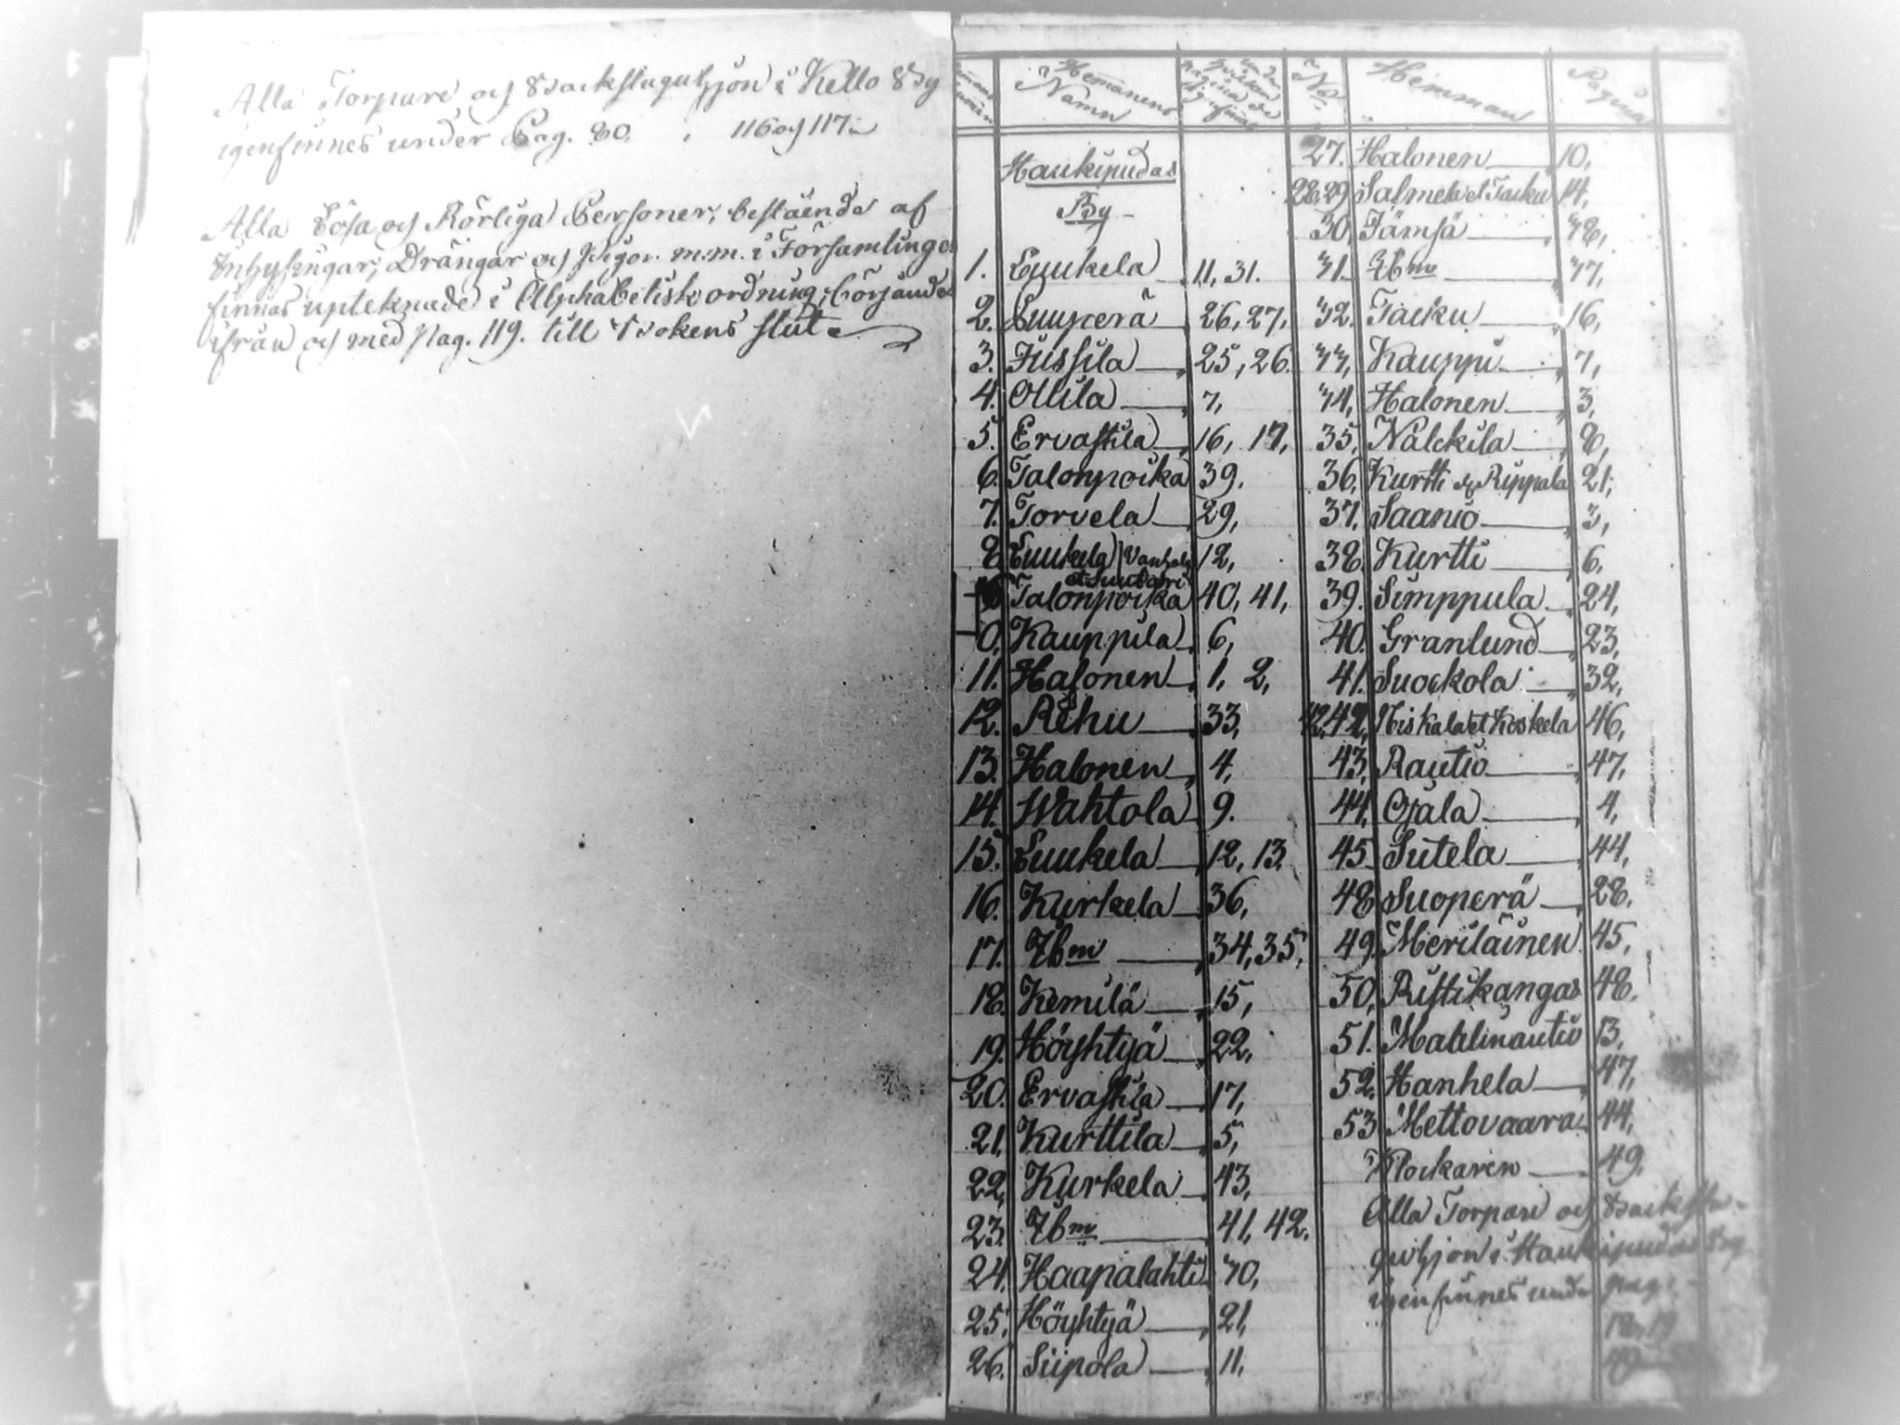 Alla Torpare och Backstuguhjon i Kello By
igenfinnes under Pag. 80. 116 och 117.
Alla Lösa och Rörliga Personer, bestående af
Inhysingar, Drängar och Pigor m.m. i Församlingen
finnas upteknade i Alphabetisk ordning, börjande
ifrån och med Pag. 119. till Bokens slut
Hemmanens Namn
No. Hemman Pagina
Haukipudas
By
1. Luukela 11, 31.
2. Luuperä 26, 27.
3. Jussila 25, 26.
4. Ollila 7,
5. Ervastila 16, 17,
6. Talonpoika 39.
7. Torvela 29,
8. Luukela Vanhala et Suutari 12,
Talonpoika 40, 41,
0. Kauppila 6,
11. Halonen 1, 2,
12. Rehu 33,
13. Halonen 4,
14. Wahtola 9.
15. Luukela 12, 13.
16. Kurkela 36,
17. Ibm 34, 35,
18. Kemilä 15,
19. Höyhtyä 22,
20. Ervastila 17,
21. Kurttila 5,
22. Kurkela 43,
23. Ibm 41, 42.
24. Haapalahti 30,
25. Höyhtyä 21,
26. Siipola 11,
27. Halonen 10,
28,29 Salmela et Tacku 14,
30. Jämsä 38,
31. Ibm 37,
32. Tacku 16,
33, Kauppi 7,
34, Halonen 3,
35, Nälckilä 8,
36, Kurtti och Rippala 21,
37. Saanio 3,
38. Kurtti 6,
39. Simppula 24,
40. Granlund 23,
41. Suockola 32,
42, Niskala et Koskela 46,
43, Rautio 47,
44, Ojala 4,
45 Sutela 44,
48 Suoperä 28,
49. Meriläinen 45,
50, Ristikangas 48.
51. Mallinautio 13,
52, Hanhela 47,
53 Mettovaara 44,
Klockaren 49.
Alla Torpare och Backstu-
guhjon i Haukipudas By
igenfinnes under pag.
18, 19
49